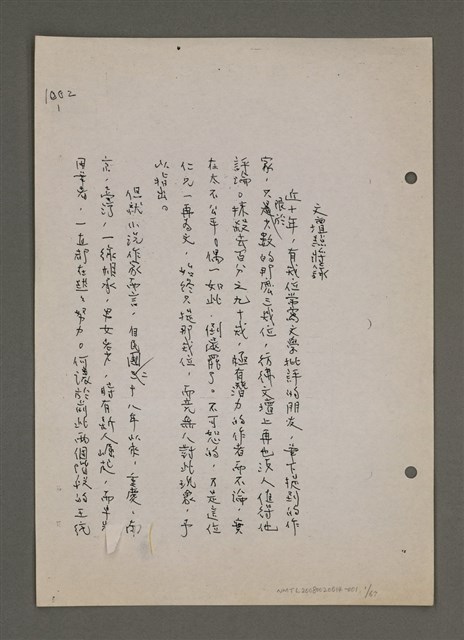 文壇點將錄
近十年，有幾位常寫文學批評的朋友，筆下提到的作
家，只限於少數的那麼三幾位，彷彿文壇上再也沒人值得他
評論。抹殺去百分之九十幾，極有潛力的作者而不論，實
在太不公平。偶一如此，倒還罷了。不可恕的，乃是這位
仁兄一再為文，始終只提那幾位，而竟無人對此現象，予
以指出。
但就小說作家而言，自民國二十八年以來，重慶，南
京，臺灣，一線相承，男女老少，時有新人崛起，而半
固筆者，一直都在努力。何況於此兩個階段的正統
1002
1